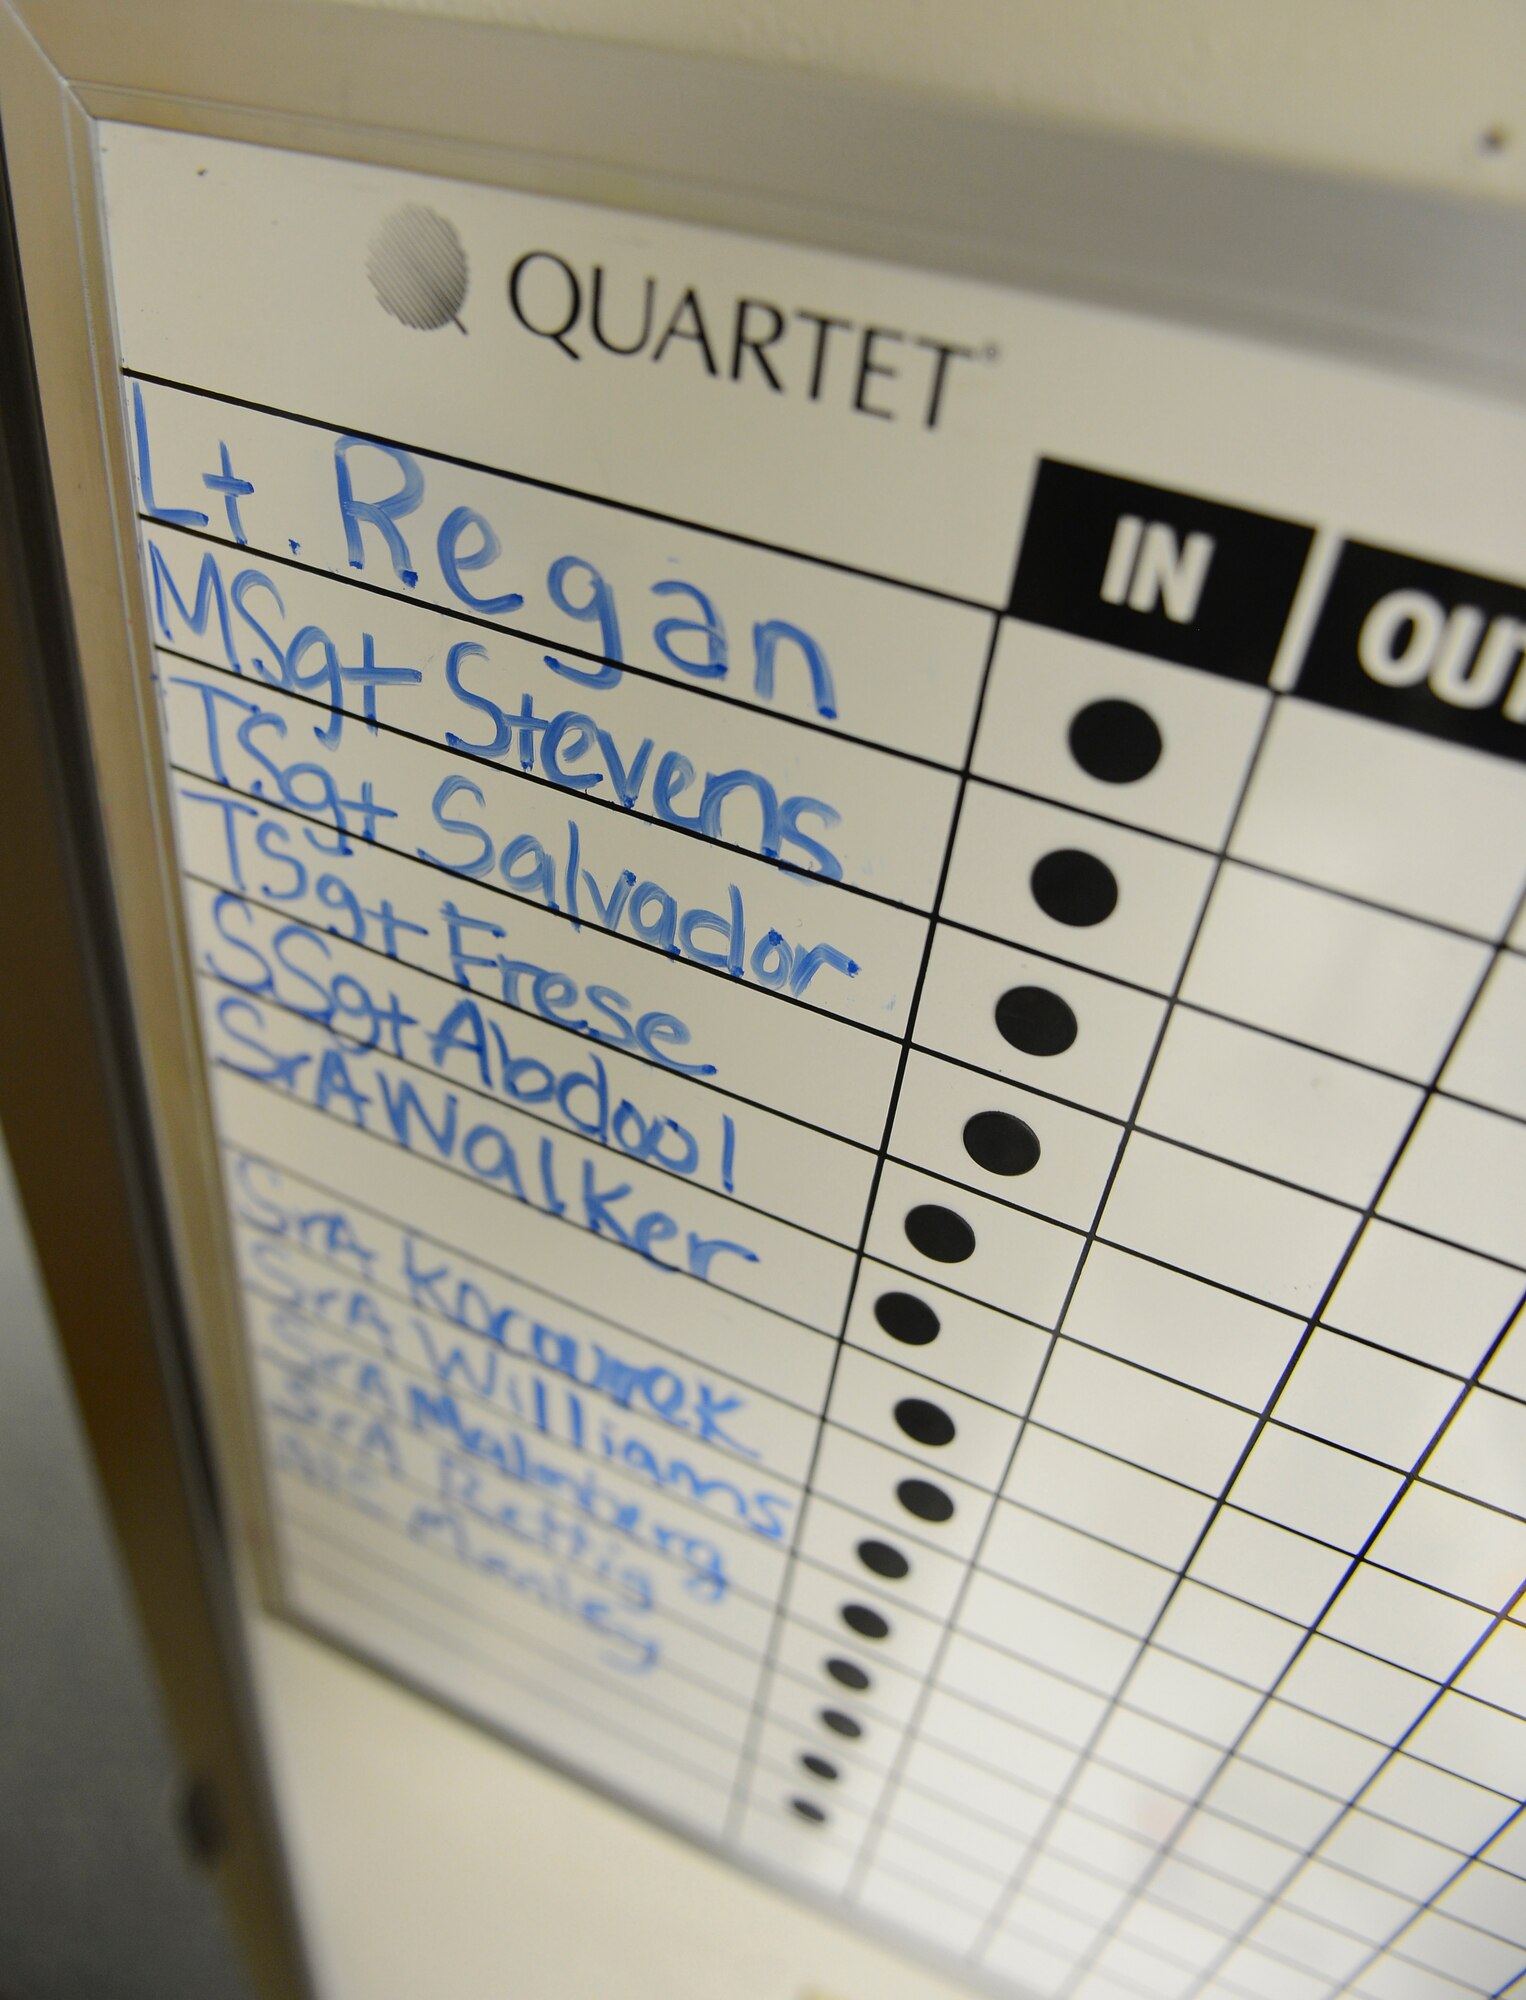 QUARTET®
IN OUT
Lt. Regan
MSgt Stevens
TSgt Salvador
TSgt Frese
SSgt Abdool
SrA Walker
SrA
SrA Williams
SrA Malmberg
SrA Rettig
Manley